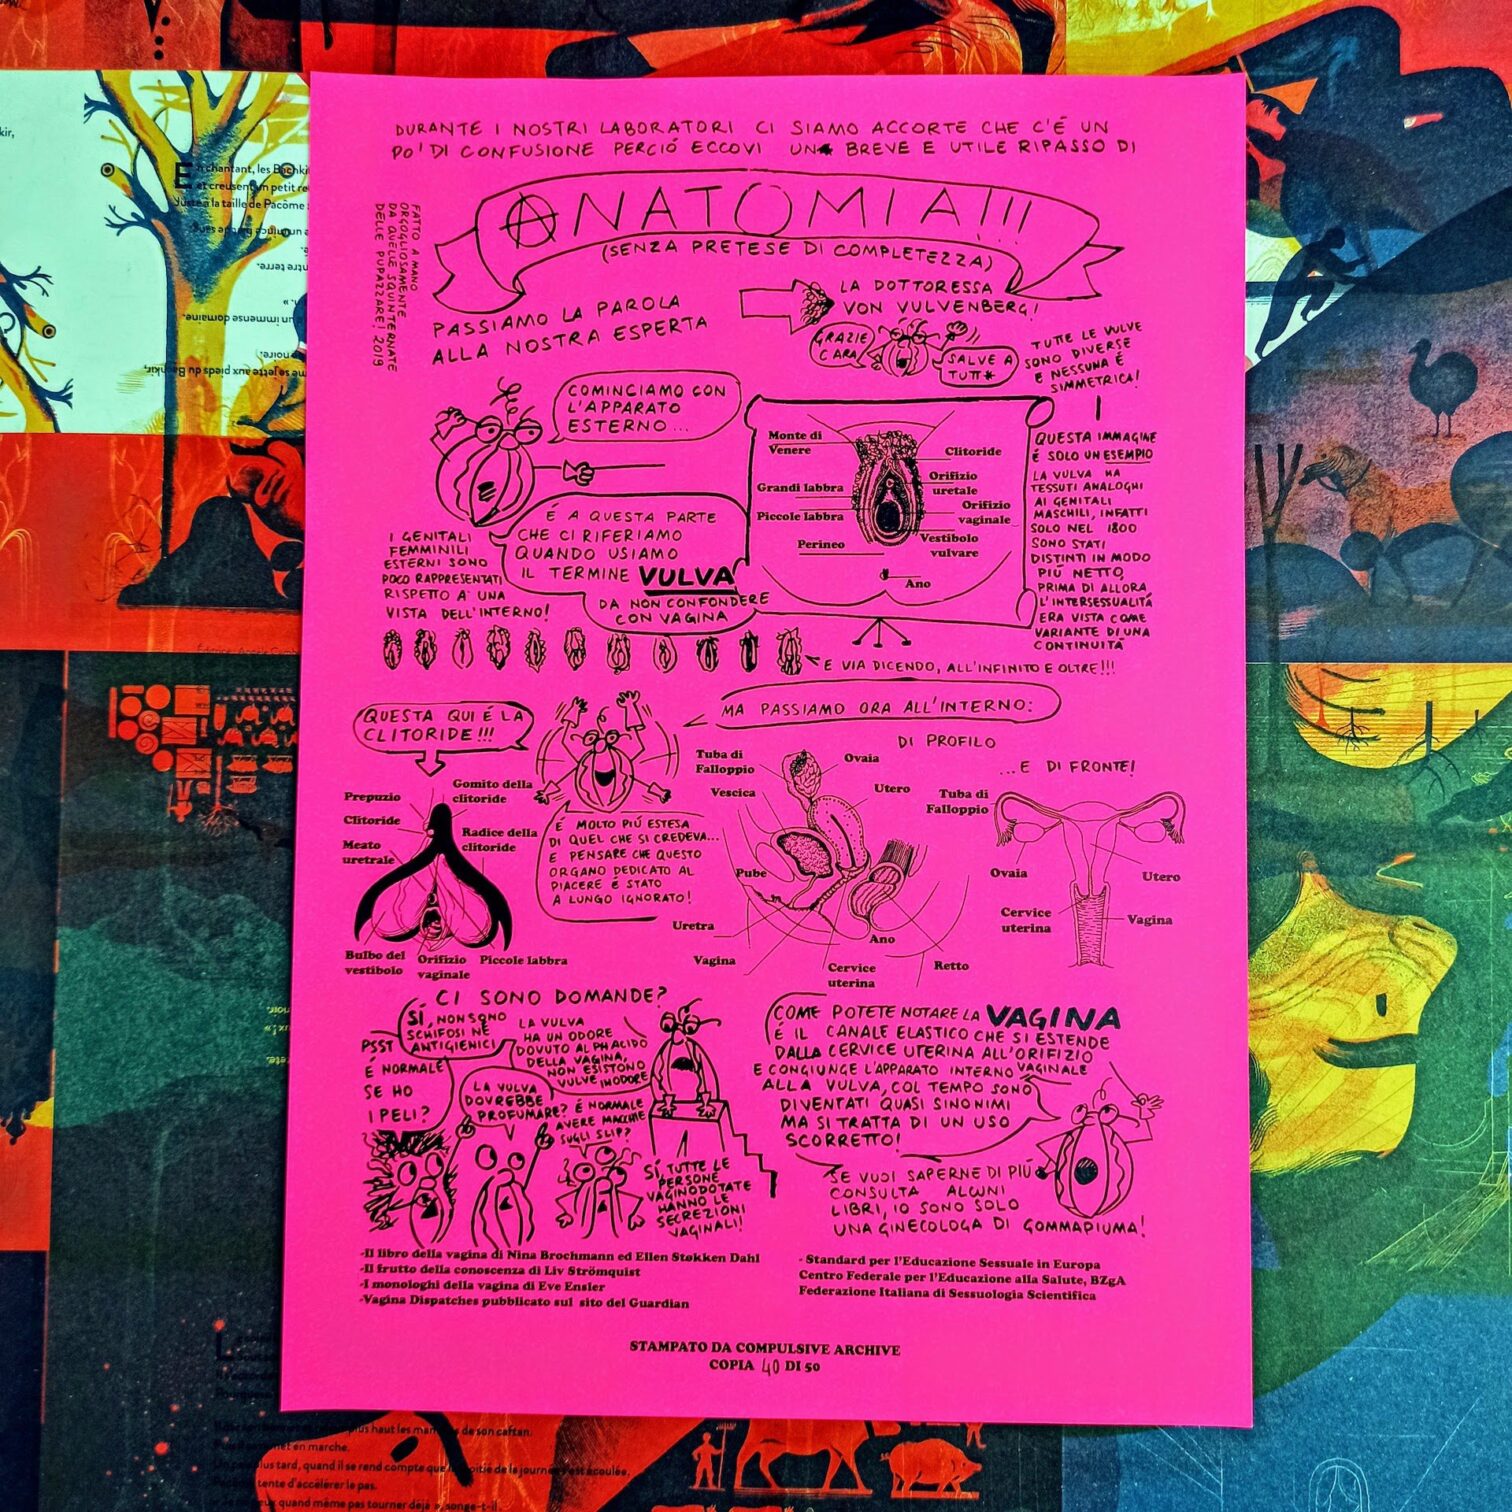 DURANTE I NOSTRI LABORATORI CI SIAMO ACCORTE CHE C'É UN
PO' DI CONFUSIONE PERCIÓ ECCOVI UN* BREVE E UTILE RIPASSO DI
ANATOMIA!!!
(SENZA PRETESE DI COMPLETEZZA)
FATTO A MANO
ORGOGLIOSAMENTE
DA QUELLE SQUINTERNATE
DELLE PUPAZZARE! 2019
PASSIAMO LA PAROLA
ALLA NOSTRA ESPERTA
LA DOTTORESSA
VON VULVENBERG!
GRAZIE
CARA
SALVE A
TUTT*
TUTTE LE VULVE
SONO DIVERSE
E NESSUNA É
SIMMETRICA!
COMINCIAMO CON
L'APPARATO
ESTERNO...
É A QUESTA PARTE
CHE CI RIFERIAMO
QUANDO USIAMO
IL TERMINE VULVA
DA NON CONFONDERE
CON VAGINA
I GENITALI
FEMMINILI
ESTERNI SONO
POCO RAPPRESENTATI
RISPETTO A UNA
VISTA DELL'INTERNO!
Monte di
Venere
Grandi labbra
Piccole labbra
Perineo
Clitoride
Orifizio
uretale
Orifizio
vaginale
Vestibolo
vulvare
Ano
QUESTA IMMAGINE
É SOLO UN ESEMPIO
LA VULVA HA
TESSUTI ANALOGHI
AI GENITALI
MASCHILI, INFATTI
SOLO NEL 1800
SONO STATI
DISTINTI IN MODO
PIÚ NETTO,
PRIMA DI ALLORA
L'INTERSESSUALITÁ
ERA VISTA COME
VARIANTE DI UNA
CONTINUITÁ
E VIA DICENDO, ALL'INFINITO E OLTRE!!!
QUESTA QUI É LA
CLITORIDE!!!
MA PASSIAMO ORA ALL'INTERNO:
DI PROFILO
...E DI FRONTE!
Prepuzio
Clitoride
Meato
uretrale
Gomito della
clitoride
Radice della
clitoride
Bulbo del
vestibolo
Orifizio
vaginale
Piccole labbra
É MOLTO PIÚ ESTESA
DI QUEL CHE SI CREDEVA...
E PENSARE CHE QUESTO
ORGANO DEDICATO AL
PIACERE É STATO
A LUNGO IGNORATO!
Tuba di
Falloppio
Vescica
Ovaia
Utero
Pube
Uretra
Vagina
Ano
Cervice
uterina
Retto
Tuba di
Falloppio
Ovaia
Utero
Cervice
uterina
Vagina
CI SONO DOMANDE?
SÍ, NON SONO
SCHIFOSI NÉ
ANTIGIENICI
PSST
É NORMALE
SE HO
I PELI?
LA VULVA
HA UN ODORE
DOVUTO AL PH ACIDO
DELLA VAGINA,
NON ESISTONO
VULVE INODORE
LA VULVA
DOVREBBE
PROFUMARE?
É NORMALE
AVERE MACCHIE
SUGLI SLIP?
SÍ, TUTTE LE
PERSONE
VAGINODOTATE
HANNO LE
SECREZIONI
VAGINALI!
COME POTETE NOTARE LA VAGINA
É IL CANALE ELASTICO CHE SI ESTENDE
DALLA CERVICE UTERINA ALL'ORIFIZIO
VAGINALE
E CONGIUNGE L'APPARATO INTERNO
ALLA VULVA, COL TEMPO SONO
DIVENTATI QUASI SINONIMI
MA SI TRATTA DI UN USO
SCORRETTO!
SE VUOI SAPERNE DI PIÚ
CONSULTA ALCUNI
LIBRI, IO SONO SOLO
UNA GINECOLOGA DI GOMMAPIUMA!
-Il libro della vagina di Nina Brochmann ed Ellen Støkken Dahl
-Il frutto della conoscenza di Liv Strömquist
-I monologhi della vagina di Eve Ensler
-Vagina Dispatches pubblicato sul sito del Guardian
- Standard per l'Educazione Sessuale in Europa
Centro Federale per l'Educazione alla Salute, BZgA
Federazione Italiana di Sessuologia Scientifica
STAMPATO DA COMPULSIVE ARCHIVE
COPIA 40 DI 50
En chantant, les Bachki
et creusent un petit re
à la taille de Pacôme
plus haut les man de son caftan.
et en marche.
plus tard, quand il se rend compte que la moitié de la journée s'est écoulée.
tente d'accélérer le pas.
quand même pas tourner déjà », songe-t-il.